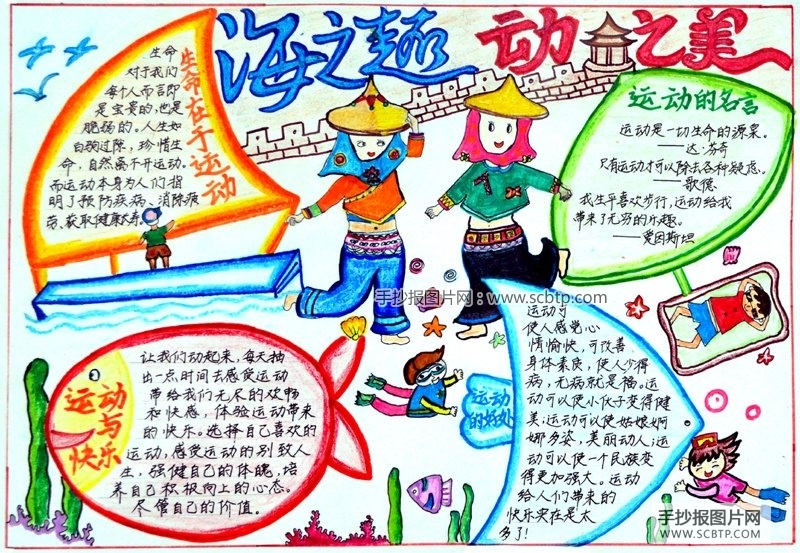 海之趣 动之美
生命在于运动
生命
对于我们
每个人而言即
是宝贵的,也是
脆弱的。人生如
白驹过隙,珍惜生
命,自然离不开运动。
而运动本身为人们指
明了预防疾病、消除疲
劳、获取健康长寿
运动的名言
运动是一切生命的源泉。
——达·芬奇
只有运动才可以除去各种疑虑。
——歌德
我生平喜欢步行,运动给我
带来了无穷的乐趣。
——爱因斯坦
手抄报图片网:www.scbtp.com
运动与快乐
让我们动起来,每天抽
出一点时间去感受运动
带给我们无尽的欢畅
和快感,体验运动带来
的快乐。选择自己喜欢的
运动,感受运动的别致人
生,强健自己的体魄,培
养自己积极向上的心态。
尽管自己的价值。
运动
的好处
运动可
使人感觉心
情愉快,可改善
身体素质,使人少得
病,无病就是福。运
动可以使小伙子变得健
美;运动可以使姑娘婀
娜多姿,美丽动人;运
动可以使一个民族变
得更加强大。运动
给人们带来的
快乐实在是太
多了!
手抄报图片网
WWW.SCBTP.COM